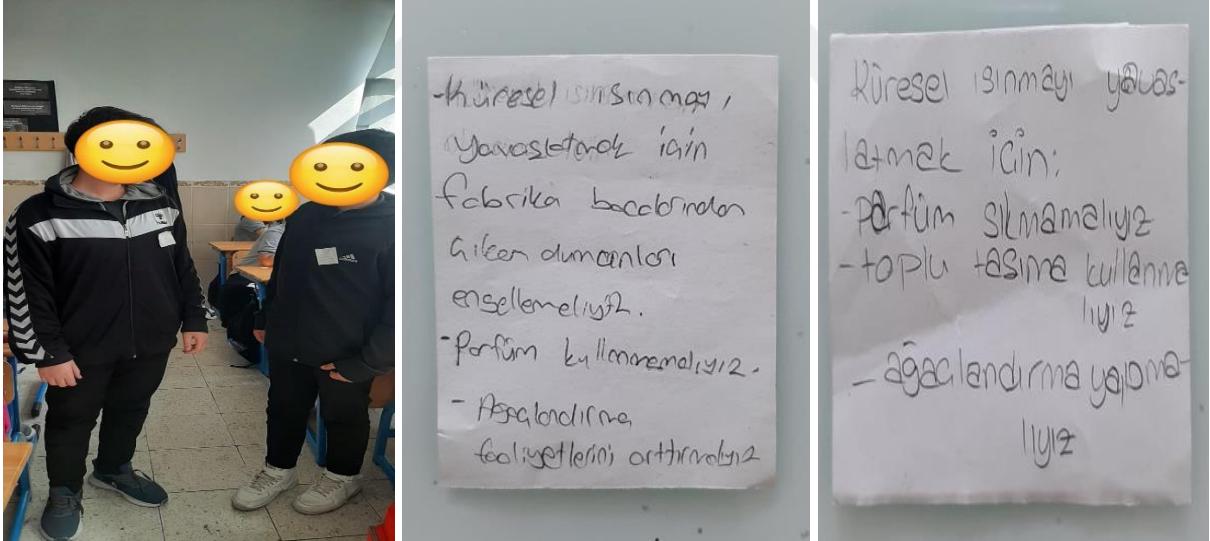 -Küresel ısınmayı,
yavaşlatmak için
fabrika bacalarından
çıkan dumanları
engellemeliyiz.
-Parfüm kullanmamalıyız.
- Ağaçlandırma
faaliyetlerini arttırmalıyız
Küresel ısınmayı yavaş-
latmak için:
-Parfüm sıkmamalıyız
-toplu taşıma kullanma
lıyız
- ağaçlandırma yapma-
lıyız